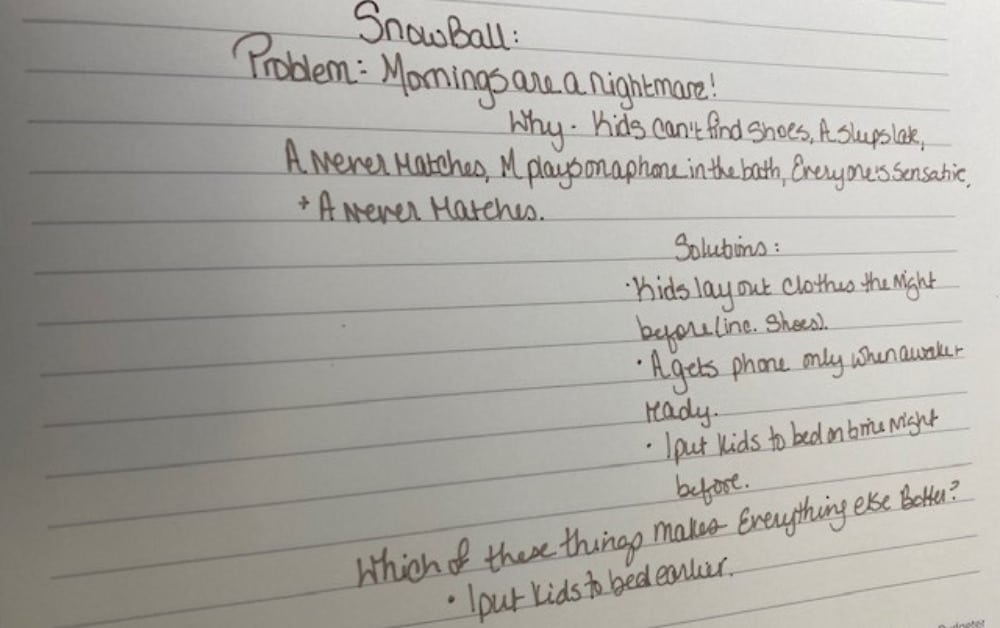 SnowBall:
Problem:- Mornings are a nightmare!
Why - Kids can't find shoes, A sleeps late,
A Never Matches, M plays on a phone in the bath, Everyone's
+ A Never Matches.
Solutions:
· Kids lay out clothes the Night
before (inc. Shoes).
· A gets phone only when awake +
ready.
· I put kids to bed on time Night
before.
Which of these things makes Everything else Better?
· I put kids to bed earlier.